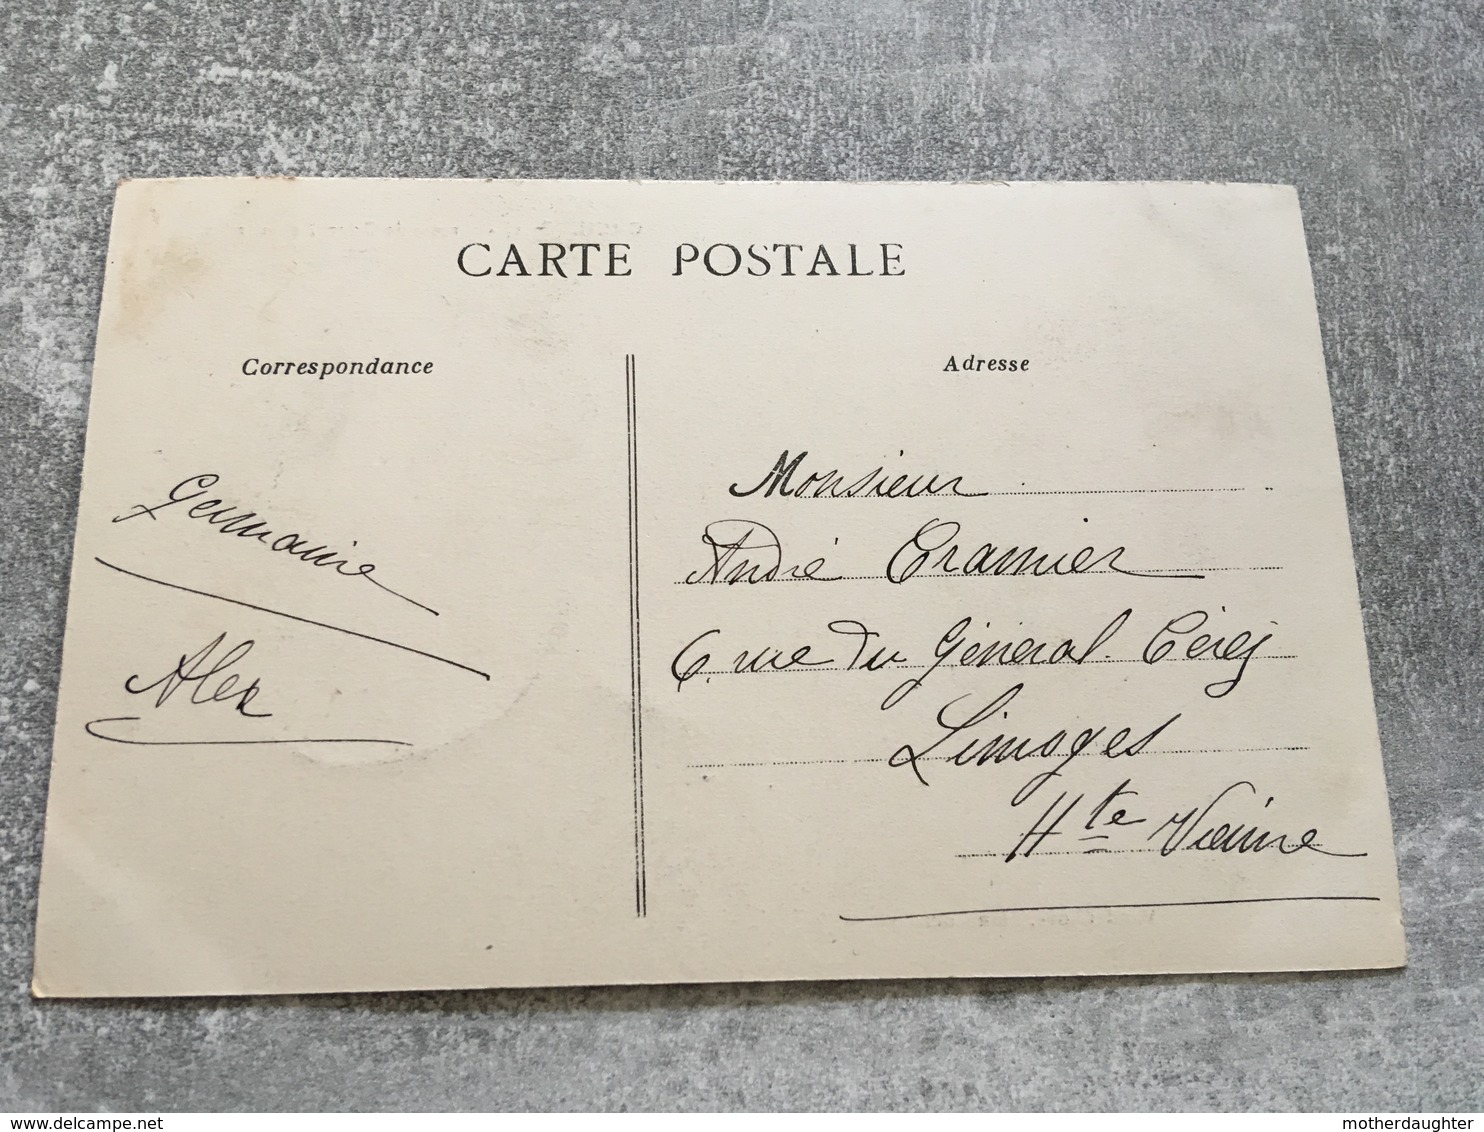 CARTE POSTALE
Correspondance
Adresse
Germaine
Alex
Monsieur
André Cramier
6. rue du Général Cérez
Limoges
Hte Vienne
delcampe.net
motherdaughter